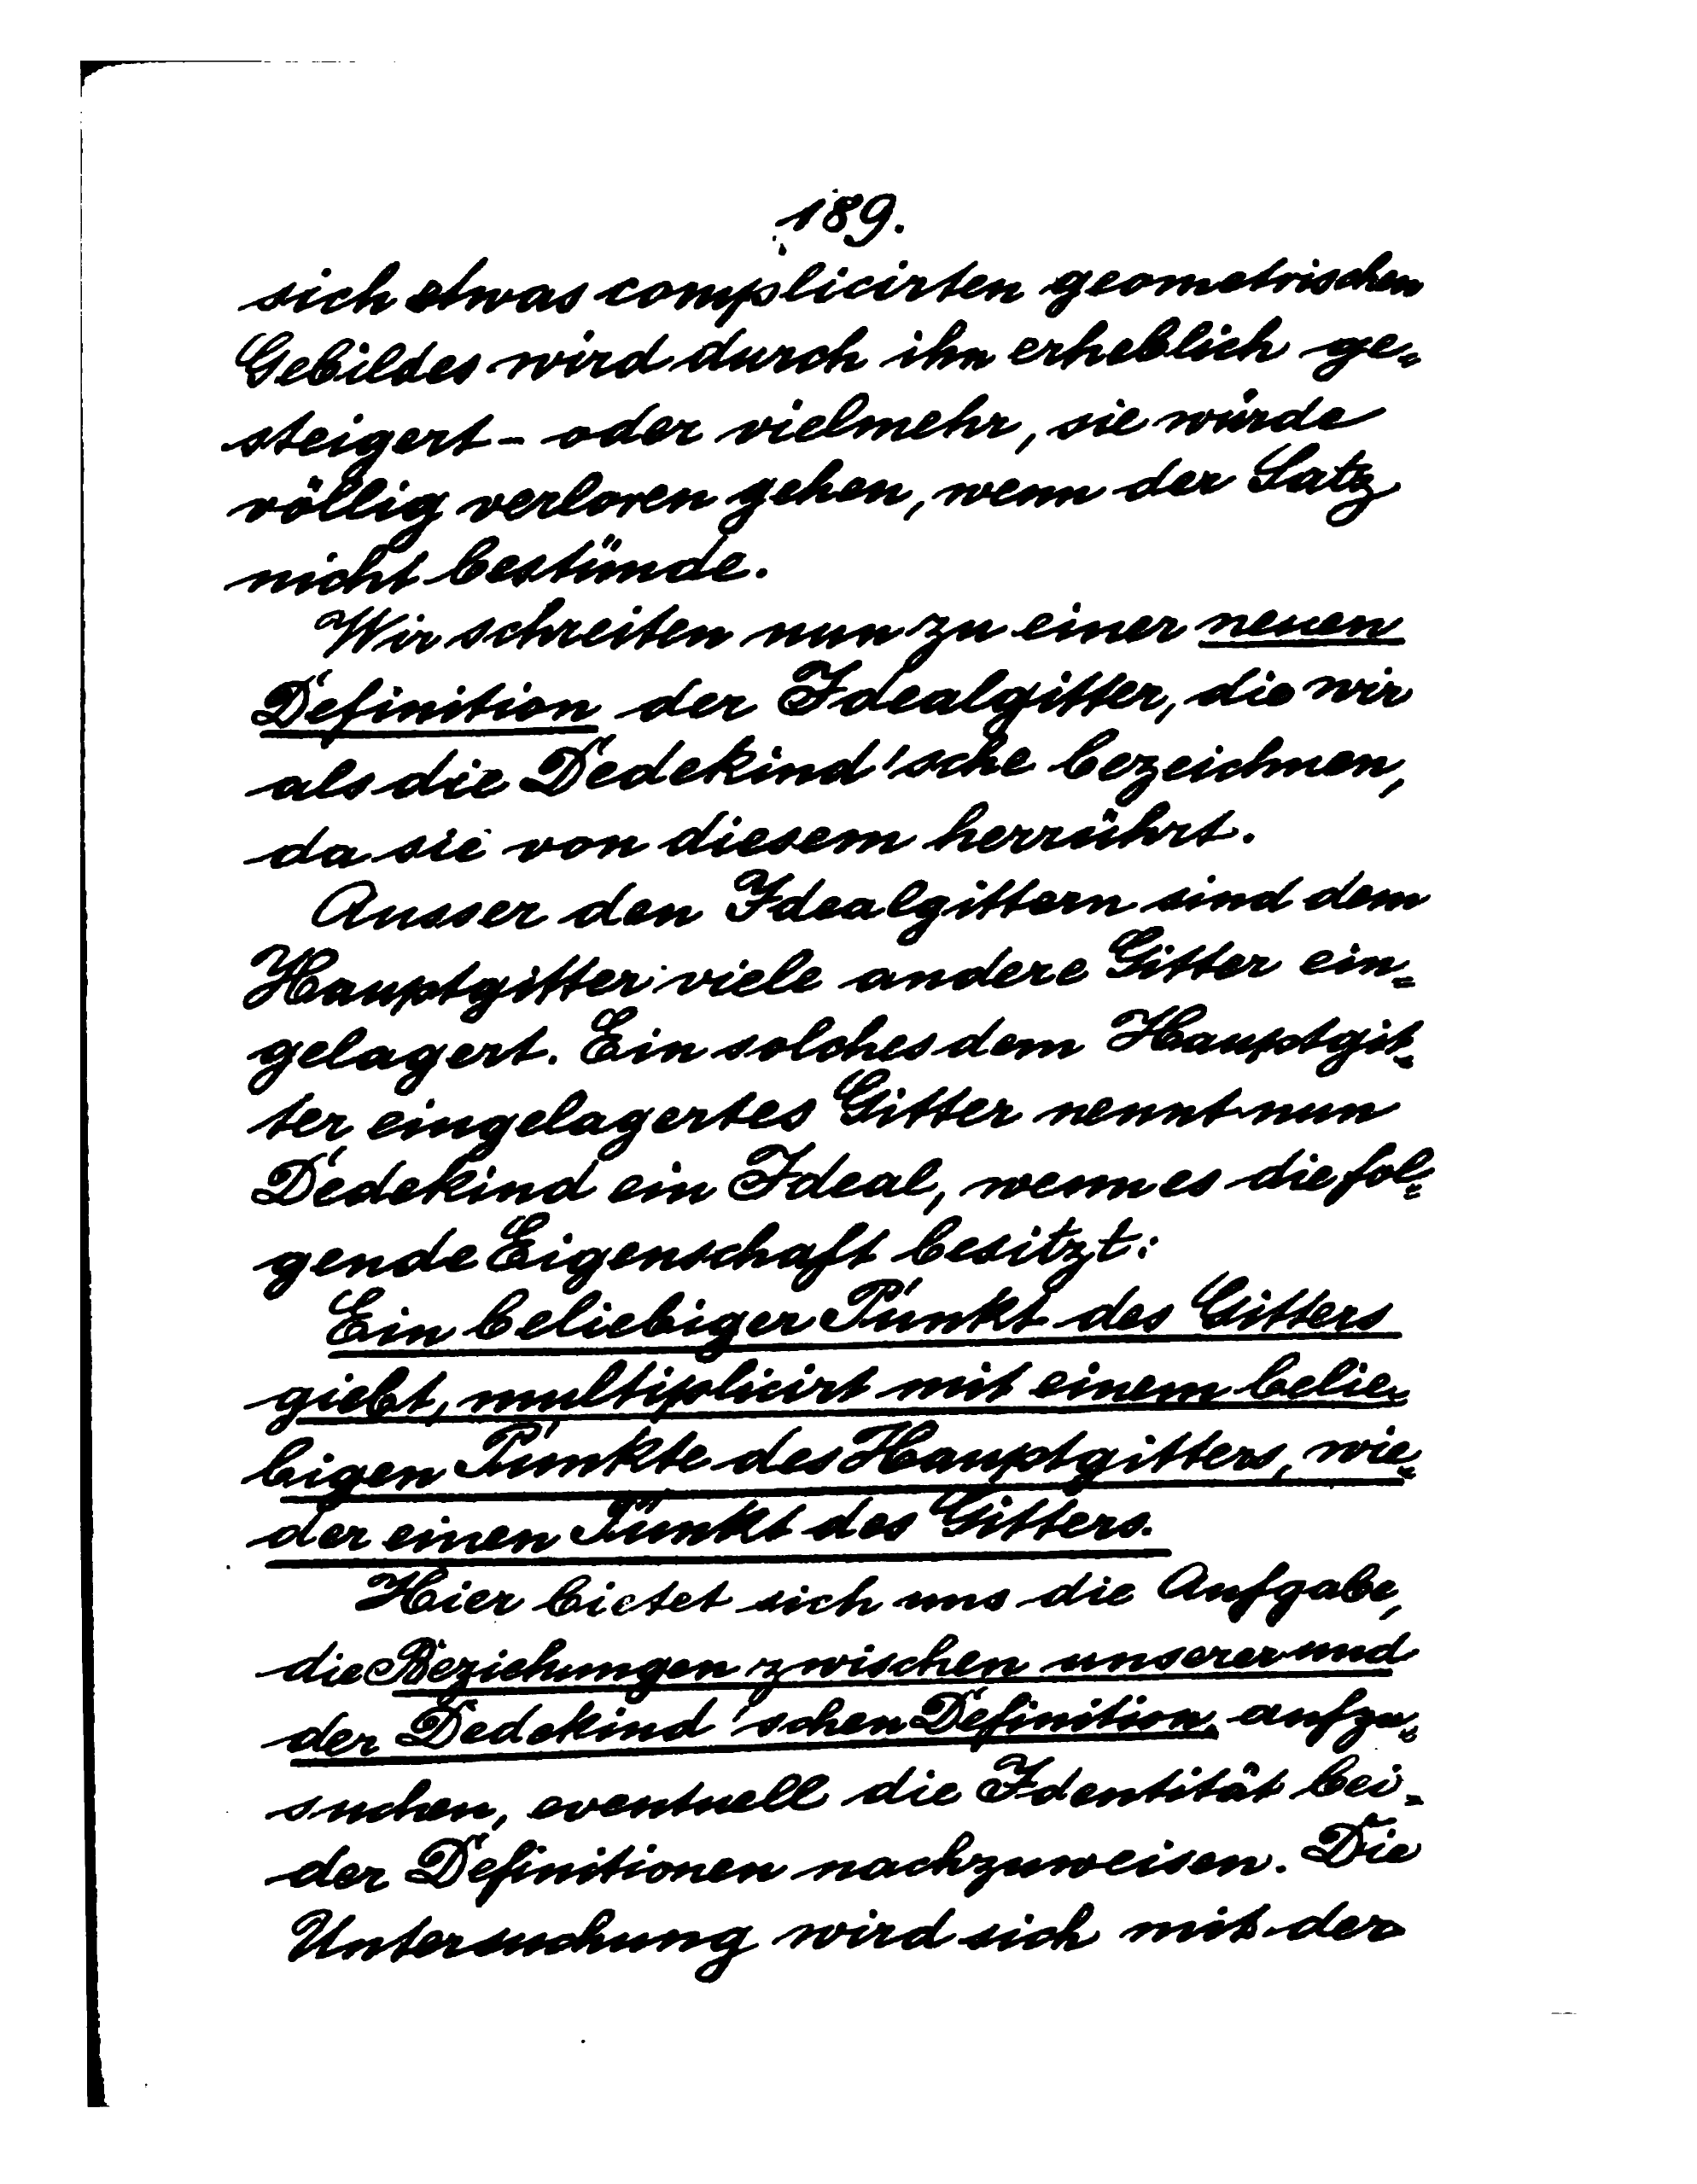 189.
sich etwas complicirten geometrischen
Gebildes wird durch ihn erheblich ge=
steigert - oder vielmehr, sie würde
völlig verloren gehen, wenn der Satz
nicht bestünde.
Wir schreiten nun zu einer neuen
Definition der Idealgitter, die wir
als die Dedekind'sche bezeichnen,
da sie von diesem herrührt.
Ausser den Idealgittern sind dem
Hauptgitter viele andere Gitter ein=
gelagert. Ein solches dem Hauptgit=
ter eingelagertes Gitter nennt nun
Dedekind ein Ideal, wenn es die fol=
gende Eigenschaft besitzt:
Ein beliebiger Punkt des Gitters
giebt, multiplicirt mit einem belie=
bigen Punkte des Hauptgitters, wie=
der einen Punkt des Gitters.
Hier bietet sich uns die Aufgabe,
die Beziehungen zwischen unserer und
der Dedekind'schen Definition aufzu=
suchen, eventuell die Identität bei=
der Definitionen nachzuweisen. Die
Untersuchung wird sich mit der